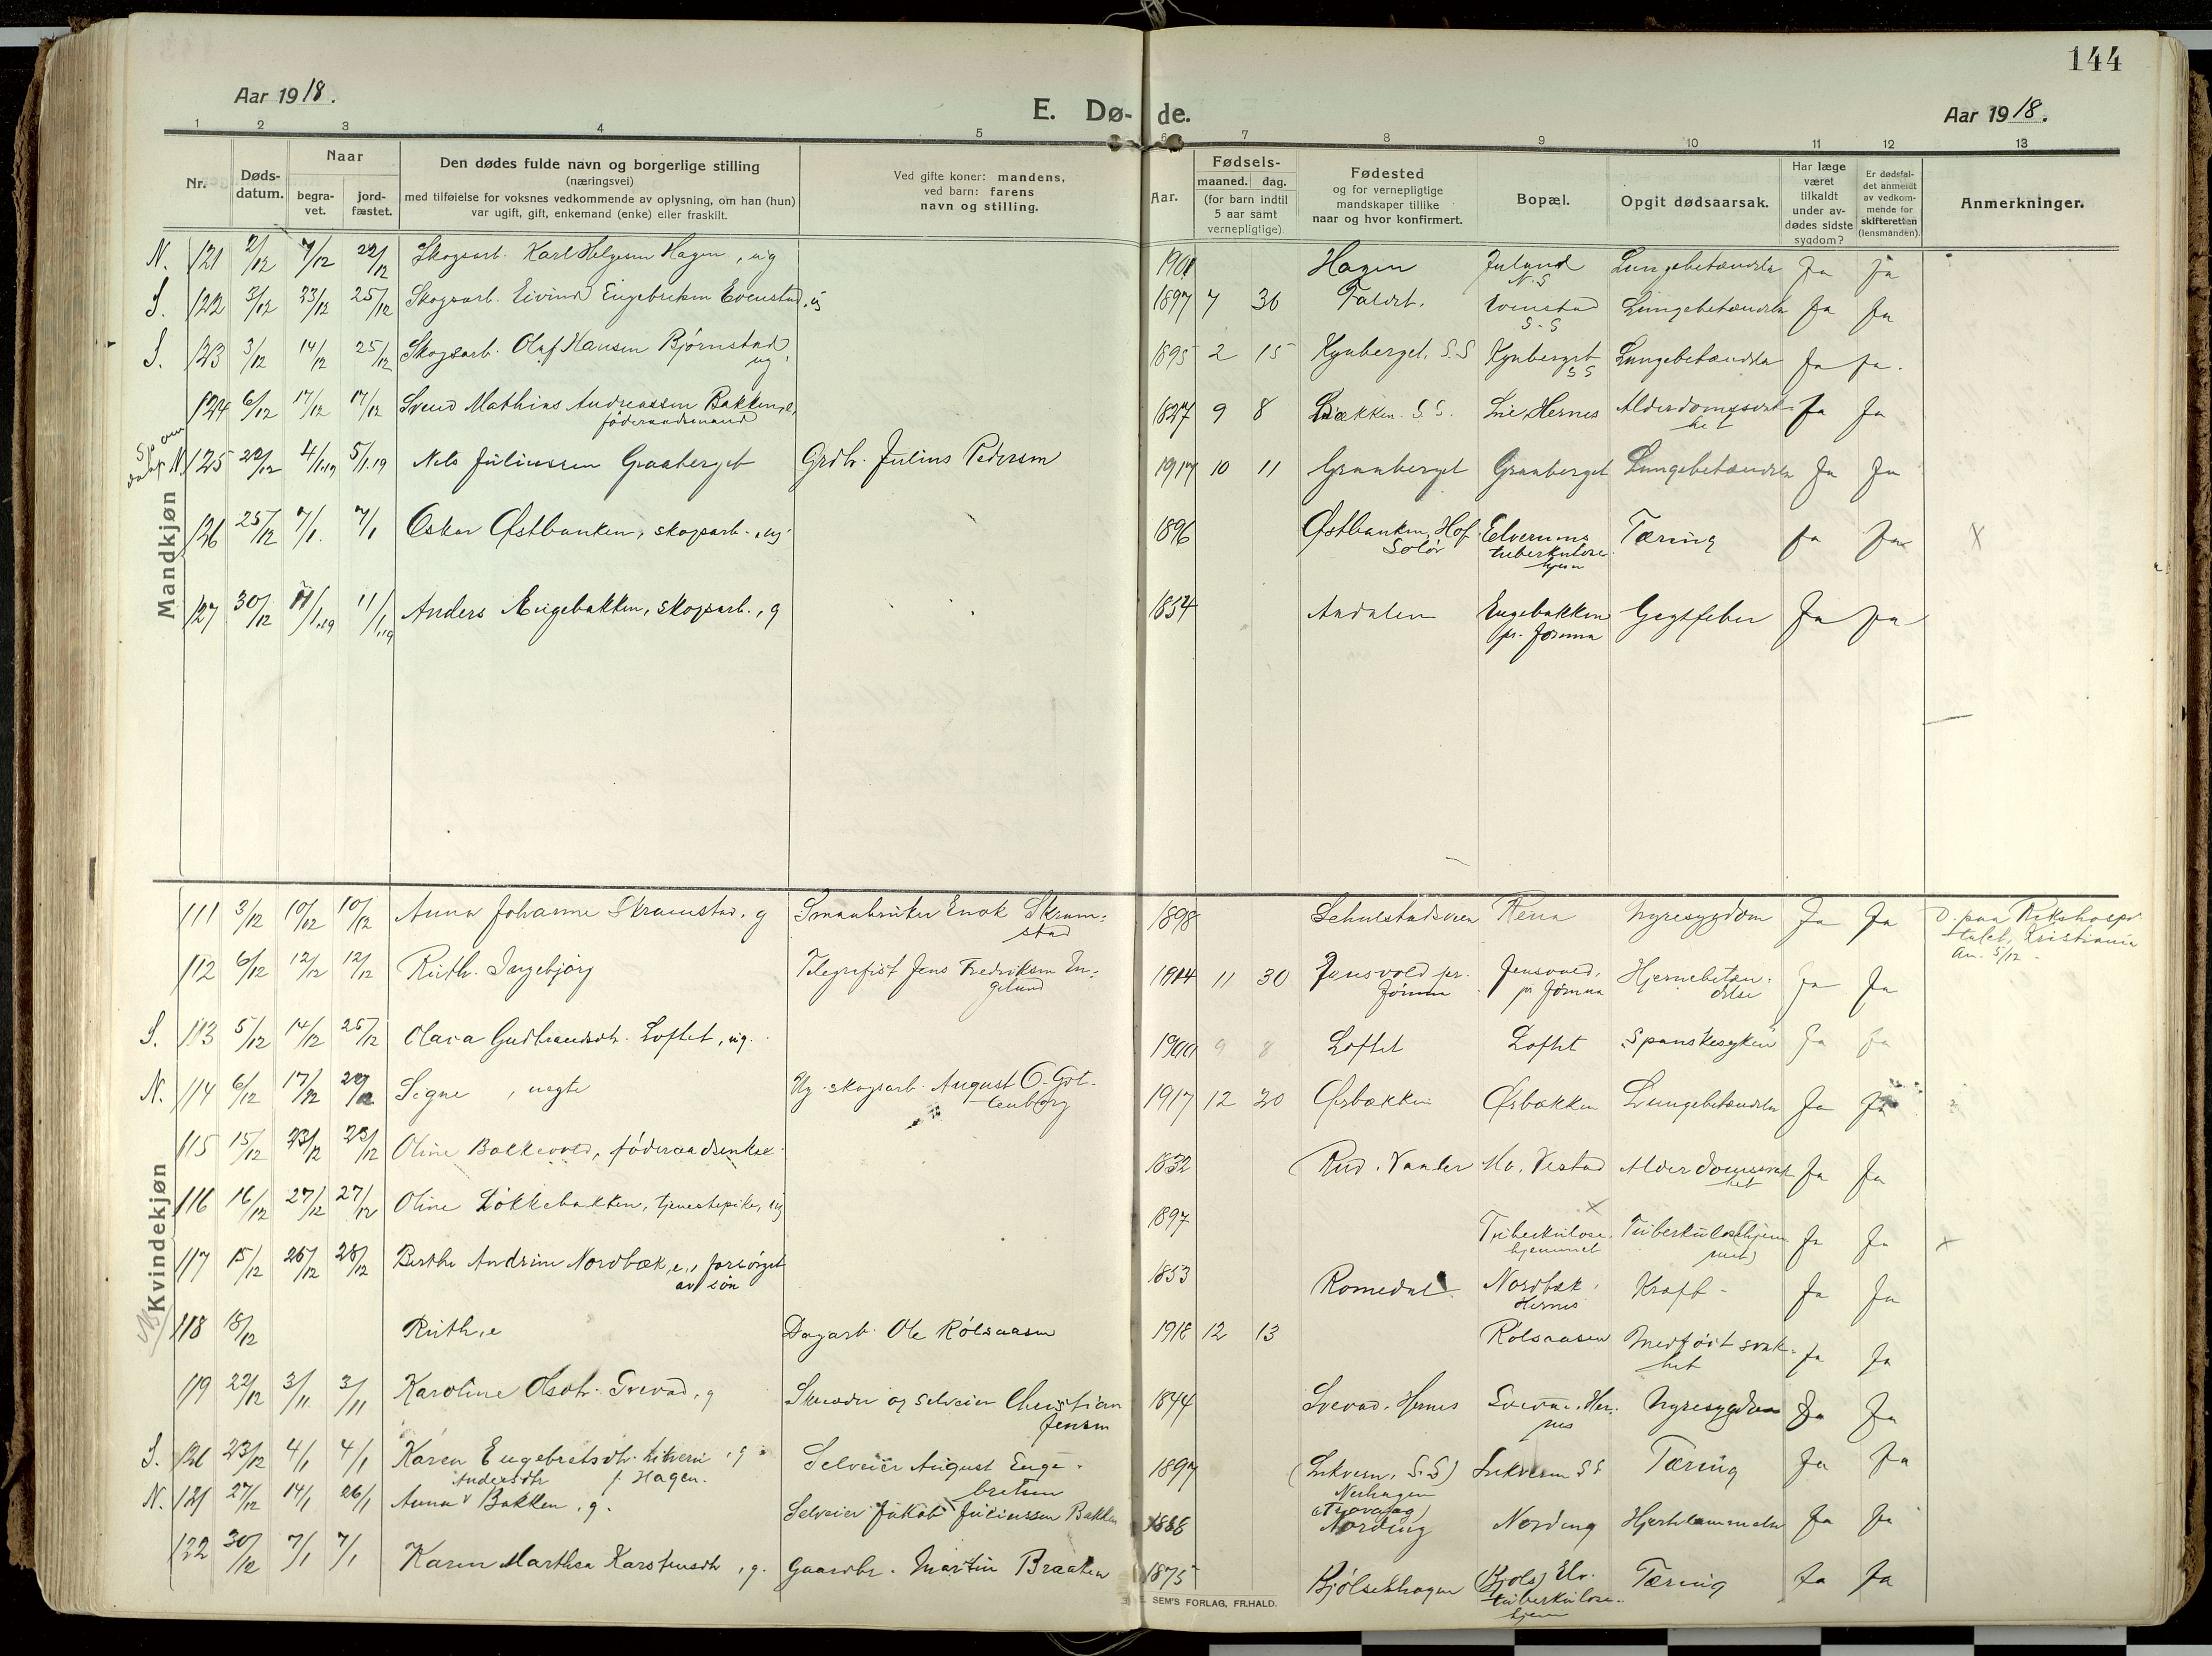 144
Aar 1918.
E. Dø-de.
Aar 1918.
1 2 3 4 5 6 7 8 9 10 11 12 13
Nr.
Døds-datum.
Naar
begra-vet.
jord-fæstet.
Den dødes fulde navn og borgerlige stilling
(næringsvei)
med tilføielse for voksnes vedkommende av oplysning, om han (hun)
var ugift, gift, enkemand (enke) eller fraskilt.
Ved gifte koner: mandens,
ved barn: farens
navn og stilling.
Aar.
Fødsels-
maaned. dag.
(for barn indtil
5 aar samt
vernepligtige)
Fødested
og for vernepligtige
mandskaper tillike
naar og hvor konfirmert.
Bopæl.
Opgit dødsaarsak.
Har læge
været
tilkaldt
under av-
dødes sidste
sygdom?
Er dødsfal-
det anmeldt
av vedkom-
mende for
skifteretten
(lensmanden).
Anmerkninger.
Mandkjøn
N. 121 2/12 7/12 22/12 Skogsarb. Karl Helgesen Hagen, ug 1901 Hagen Juland N.S Lungebetændelse Ja Ja
S. 122 3/12 23/12 25/12 Skogsarb. Eivind Engebretsen Evenstad, ug 1897 7 30 Evenstad S.S Lungebetændelse Ja Ja
S. 123 3/12 14/12 25/12 Skogsarb. Olaf Hansen Bjørnstad ug. 1895 2 15 Kynberget, S.S Kynberget S S Lungebetændelse Ja Ja.
124 6/12 17/12 17/12 Svend Mathias Andreassen Bakken, e, føderaadsmand 1827 9 8 Bækken S.S. Lie, Hernes Alderdomssvakhet Ja Ja
N. 125 4/1.19 5/1.19 Nils Juliussen Graaberget Grdbr. Julius Pedersen 1917 10 11 Graaberget Graaberget Lungebetændelse Ja Ja
126 25/12 7/1. 7/1 Oskar Østbanken, skogsarb., ug. 1896 Østbanken, Hof Solør Elverums tuberkulosehjem Tæring Ja Ja X
127 30/12 11/1.19 11/1.19 Anders Engebakken, skogsarb., g 1854 Aadalen Engebakken pr. Jømna Gigtfeber Ja Ja
Kvindekjøn
111 3/12 10/12 10/12 Anna Johanne Skramstad, g Smaabruker Enok Skram-stad 1898 Rena Nyresygdom Ja Ja D. paa Rikshospitalet, Kristiania An. 5/12.
112 6/12 12/12 12/12 Ruth Ingebjørg Telegrafist Jens Fredriksen En-gelund 1914 11 30 Jensvold pr. Jømna Jensvold, pr Jømna Hjernebetæn-delse Ja Ja
S. 113 5/12 14/12 25/12 Olava Gudbrandsdtr. Loftet, ug. 1900 9 8 Loftet Loftet Spanskesyken Ja Ja
N. 114 6/12 17/12 Signe, uegte Ug. skogsarb. August O. Got-tenborg 1917 12 20 Øsbækken Øsbækken Lungebetændelse Ja Ja
115 15/12 23/12 23/12 Oline Bakkevold, føderaadsenke 1832 Rud, Vaaler Alderdomssvakhet Ja Ja
116 16/12 27/12 27/12 Oline Løkkebakken, tjenestepike, ug 1897 X Tuberkulose-hjemmet Tuberkulose (hjem-met) Ja Ja X
117 15/12 28/12 28/12 Berthe Andrine Nordbæk, e., forsørget av søn 1853 Romedal Nordbæk, Hernes Kræft Ja Ja
118 18/12 Ruth, e Dagarb. Ole Rølsaasen 1918 12 13 Rølsaasen Medfødt svak-het Ja Ja
119 22/12 3/11 3/11 Karoline Olsdtr. Svevad, g Skrædder og selveier Christian Jensen 1844 Svevad, Hernes Svevad, Her-nes Nyresygdom Ja Ja
S. 120 23/12 4/1 4/1 Karen Engebretsdtr. Likvern, g Selveier August Enge-bretsen 1897 (Likvern, S.S) Likvern S S Tæring Ja Ja
N. 121 27/12 14/1 26/1 Anna Andersdtr f. Hagen. Bakken, g. Selveier Jakob Juliussen Bakken 1888 Nerhagen Nording Nording Hjertelammelse Ja Ja
122 30/12 7/1 7/1 Karen Marthea Karstensdtr, g. Gaardbr. Martin Braaten 1875 Kjølsethagen (Kjøls) Elv. tuberkulose-hjem Tæring Ja Ja
SEM'S FORLAG, FR.HALD.